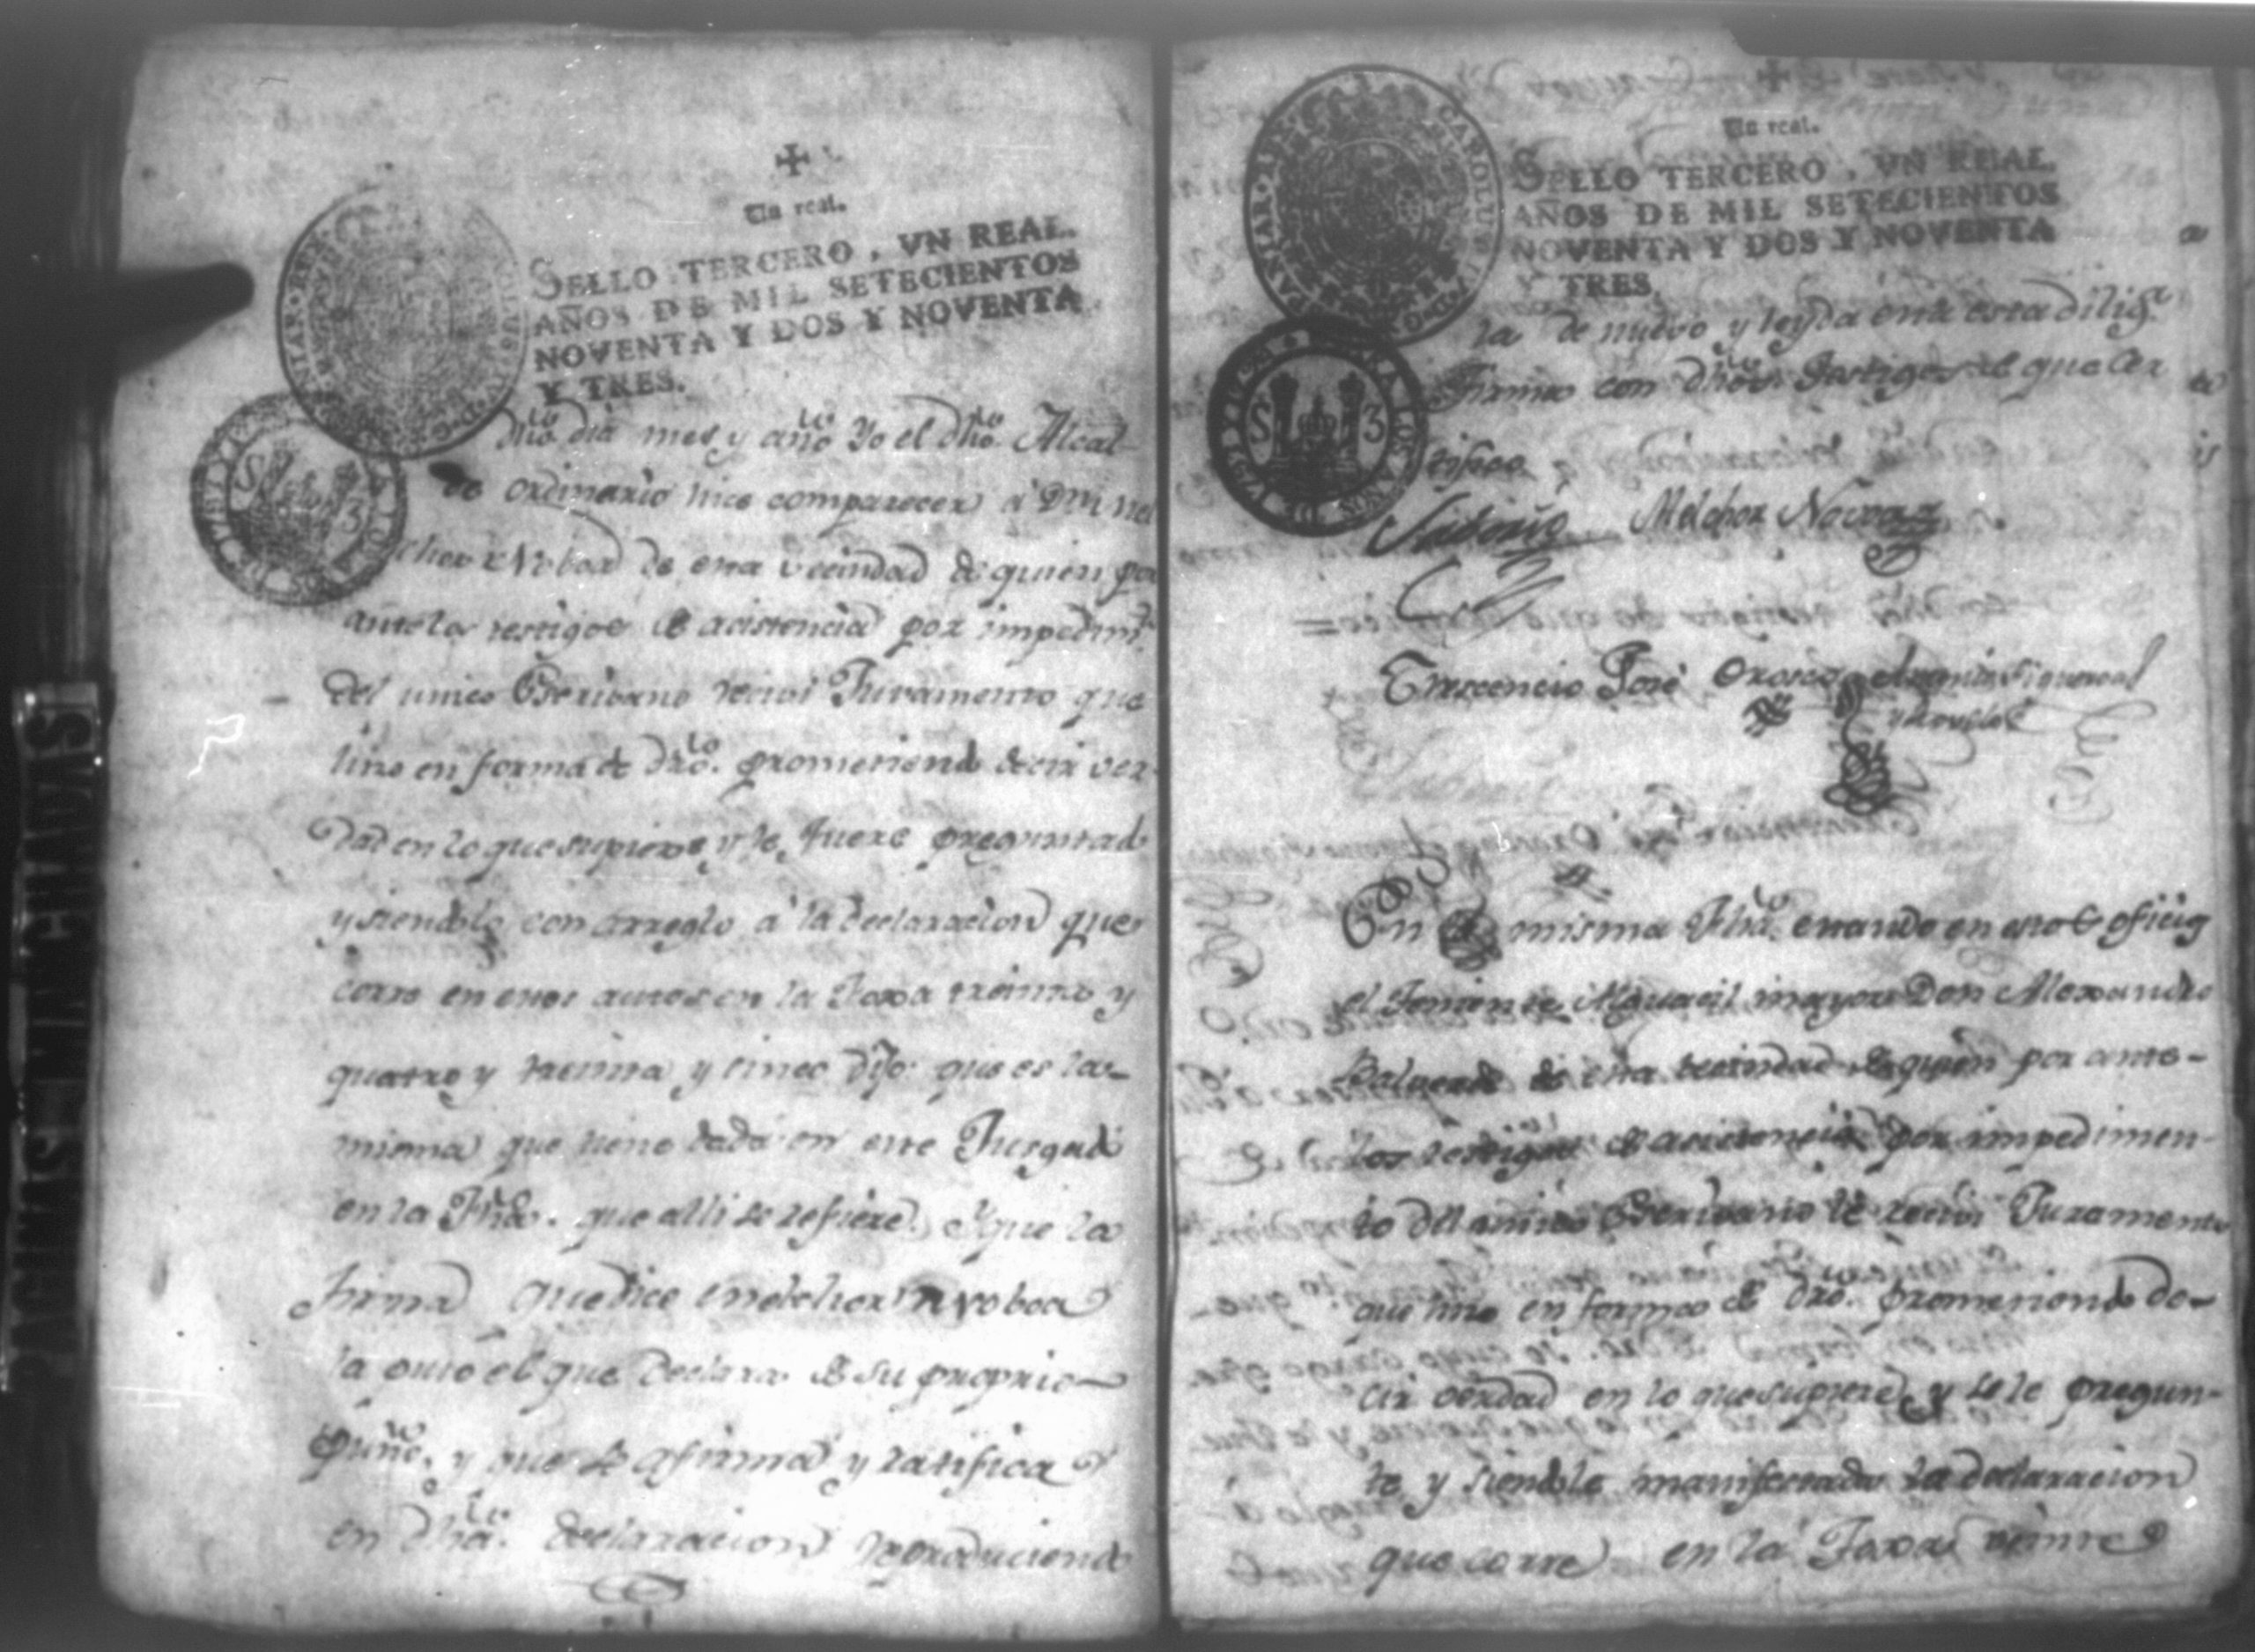 ✠
Un real.
SELLO TERCERO, VN REAL.
AÑOS DE MIL SETECIENTOS
NOVENTA Y DOS Y NOVENTA
Y TRES.
dho dia mes y año Yo el dho Alcal
de ordinario hice comparecer a Dn Mel
chor Noboa de esta vecindad de quien por
ante los testigos de acistencia por impedimto
del unico Escribano recivi Juramento que
hizo en forma de dro. prometiendo decir ver
dad en lo que supiere y le fuere preguntado
y siendolo con arreglo a la declaracion que
corre en estos autos en la Foxa treinta y
quatro y treinta y cinco dijo: que es la
misma que tiene dada en este Jusgado
en la Fha. que alli se refiere. Y que la
firma que dice Melchor Novoa
la puso el que declara de su proprio
puño, y que se afirma y ratifica
en dha. declaracion reproduciendo
Un real.
SELLO TERCERO, VN REAL
AÑOS DE MIL SETECIENTOS
NOVENTA Y DOS Y NOVENTA
Y TRES
CAROLUS
S 3
la de nuevo y leyda en esta dilig.a
Firmo con dhos Testigos de que cer
tifico
Melchor Novoa
Crescencio José Orosco
En la misma Fha. estando en este oficio
el Teniente Alguacil mayor Don Alexandro
Balverde de esta vecindad de quien por ante
los testigos de acistencia por impedimen
to del unico Escribano le recivi Juramento
que hizo en forma de dro. prometiendo de
cir verdad en lo que supiere y se le pregun
te y siendole manifestada la declaracion
que corre en la Foxa veinte